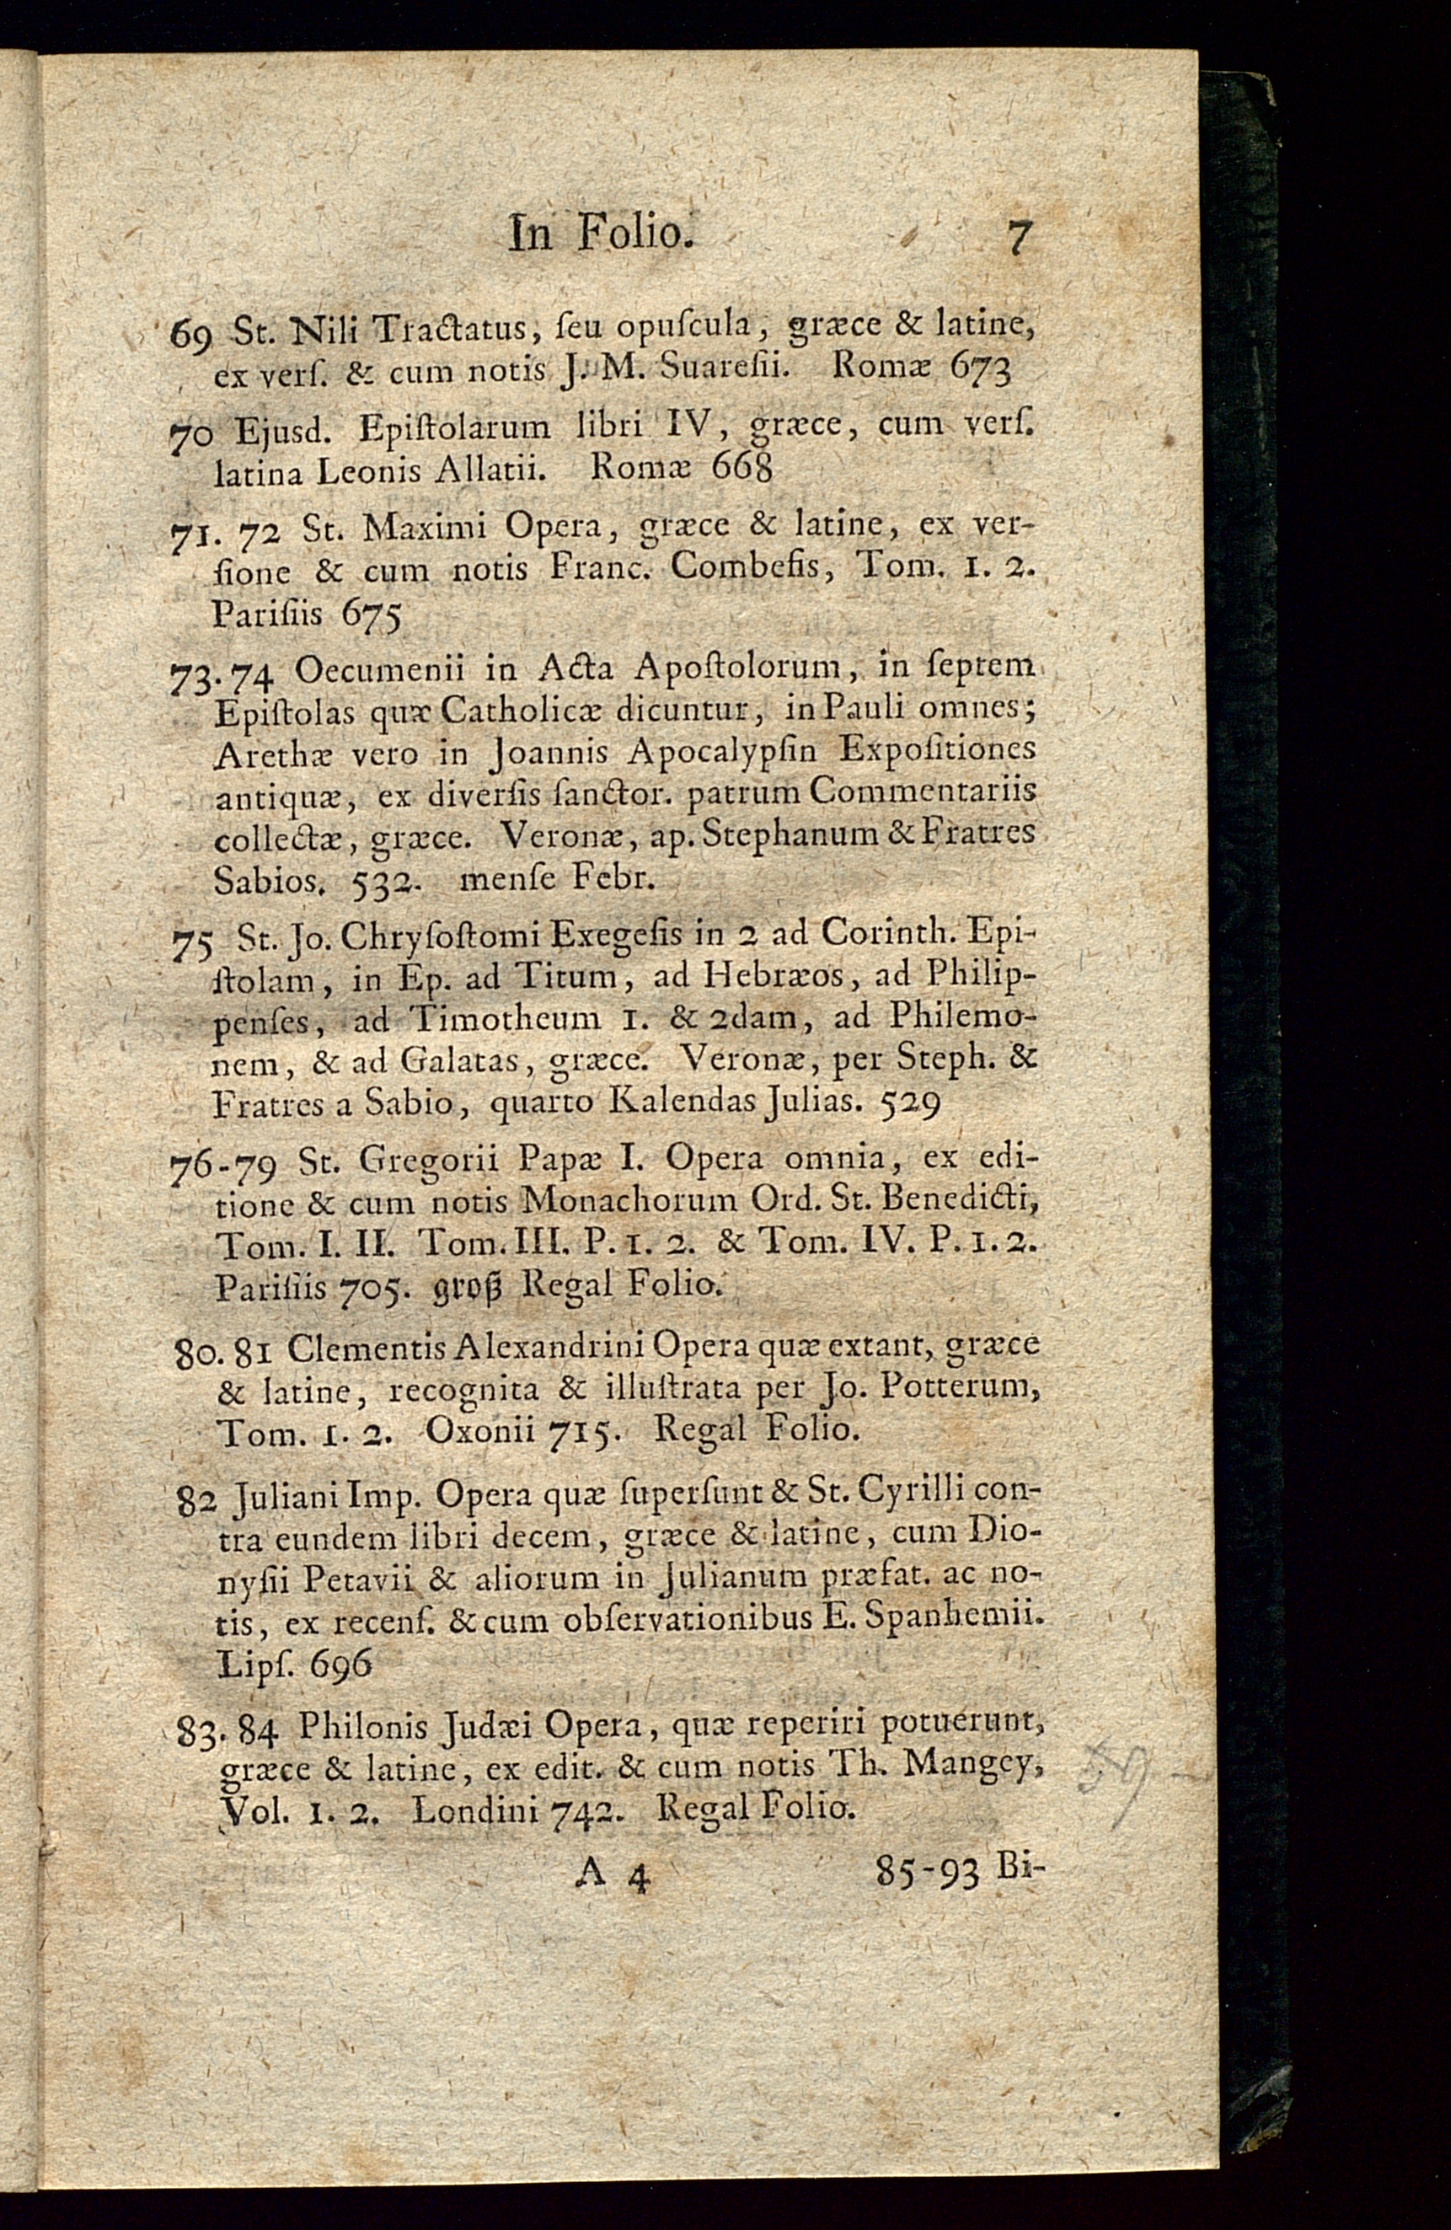 In Folio. 7
69 St. Nili Tractatus, ſeu opuſcula, græce & latine,
ex verſ. & cum notis J. M. Suareſii. Romæ 673
70 Ejusd. Epiſtolarum libri IV, græce, cum verſ.
latina Leonis Allatii. Romæ 668
71. 72 St. Maximi Opera, græce & latine, ex ver-
ſione & cum notis Franc. Combefis, Tom. 1. 2.
Pariſiis 675
73. 74 Oecumenii in Acta Apoſtolorum, in ſeptem
Epiſtolas quæ Catholicæ dicuntur, in Pauli omnes;
Arethæ vero in Joannis Apocalypſin Expoſitiones
antiquæ, ex diverſis ſanctor. patrum Commentariis
collectæ, græce. Veronæ, ap. Stephanum & Fratres
Sabios. 532. menſe Febr.
75 St. Jo. Chryſoſtomi Exegeſis in 2 ad Corinth. Epi-
ſtolam, in Ep. ad Titum, ad Hebræos, ad Philip-
penſes, ad Timotheum 1. & 2dam, ad Philemo-
nem, & ad Galatas, græce. Veronæ, per Steph. &
Fratres a Sabio, quarto Kalendas Julias. 529
76-79 St. Gregorii Papæ I. Opera omnia, ex edi-
tione & cum notis Monachorum Ord. St. Benedicti,
Tom. I. II. Tom. III. P. 1. 2. & Tom. IV. P. 1. 2.
Pariſiis 705. groß Regal Folio.
80. 81 Clementis Alexandrini Opera quæ extant, græce
& latine, recognita & illuſtrata per Jo. Potterum,
Tom. 1. 2. Oxonii 715. Regal Folio.
82 Juliani Imp. Opera quæ ſuperſunt & St. Cyrilli con-
tra eundem libri decem, græce & latine, cum Dio-
nyſii Petavii & aliorum in Julianum præfat. ac no-
tis, ex recenſ. & cum obſervationibus E. Spanhemii.
Lipſ. 696
83. 84 Philonis Judæi Opera, quæ reperiri potuerunt,
græce & latine, ex edit. & cum notis Th. Mangey,
Vol. 1. 2. Londini 742. Regal Folio.
A 4 85-93 Bi-